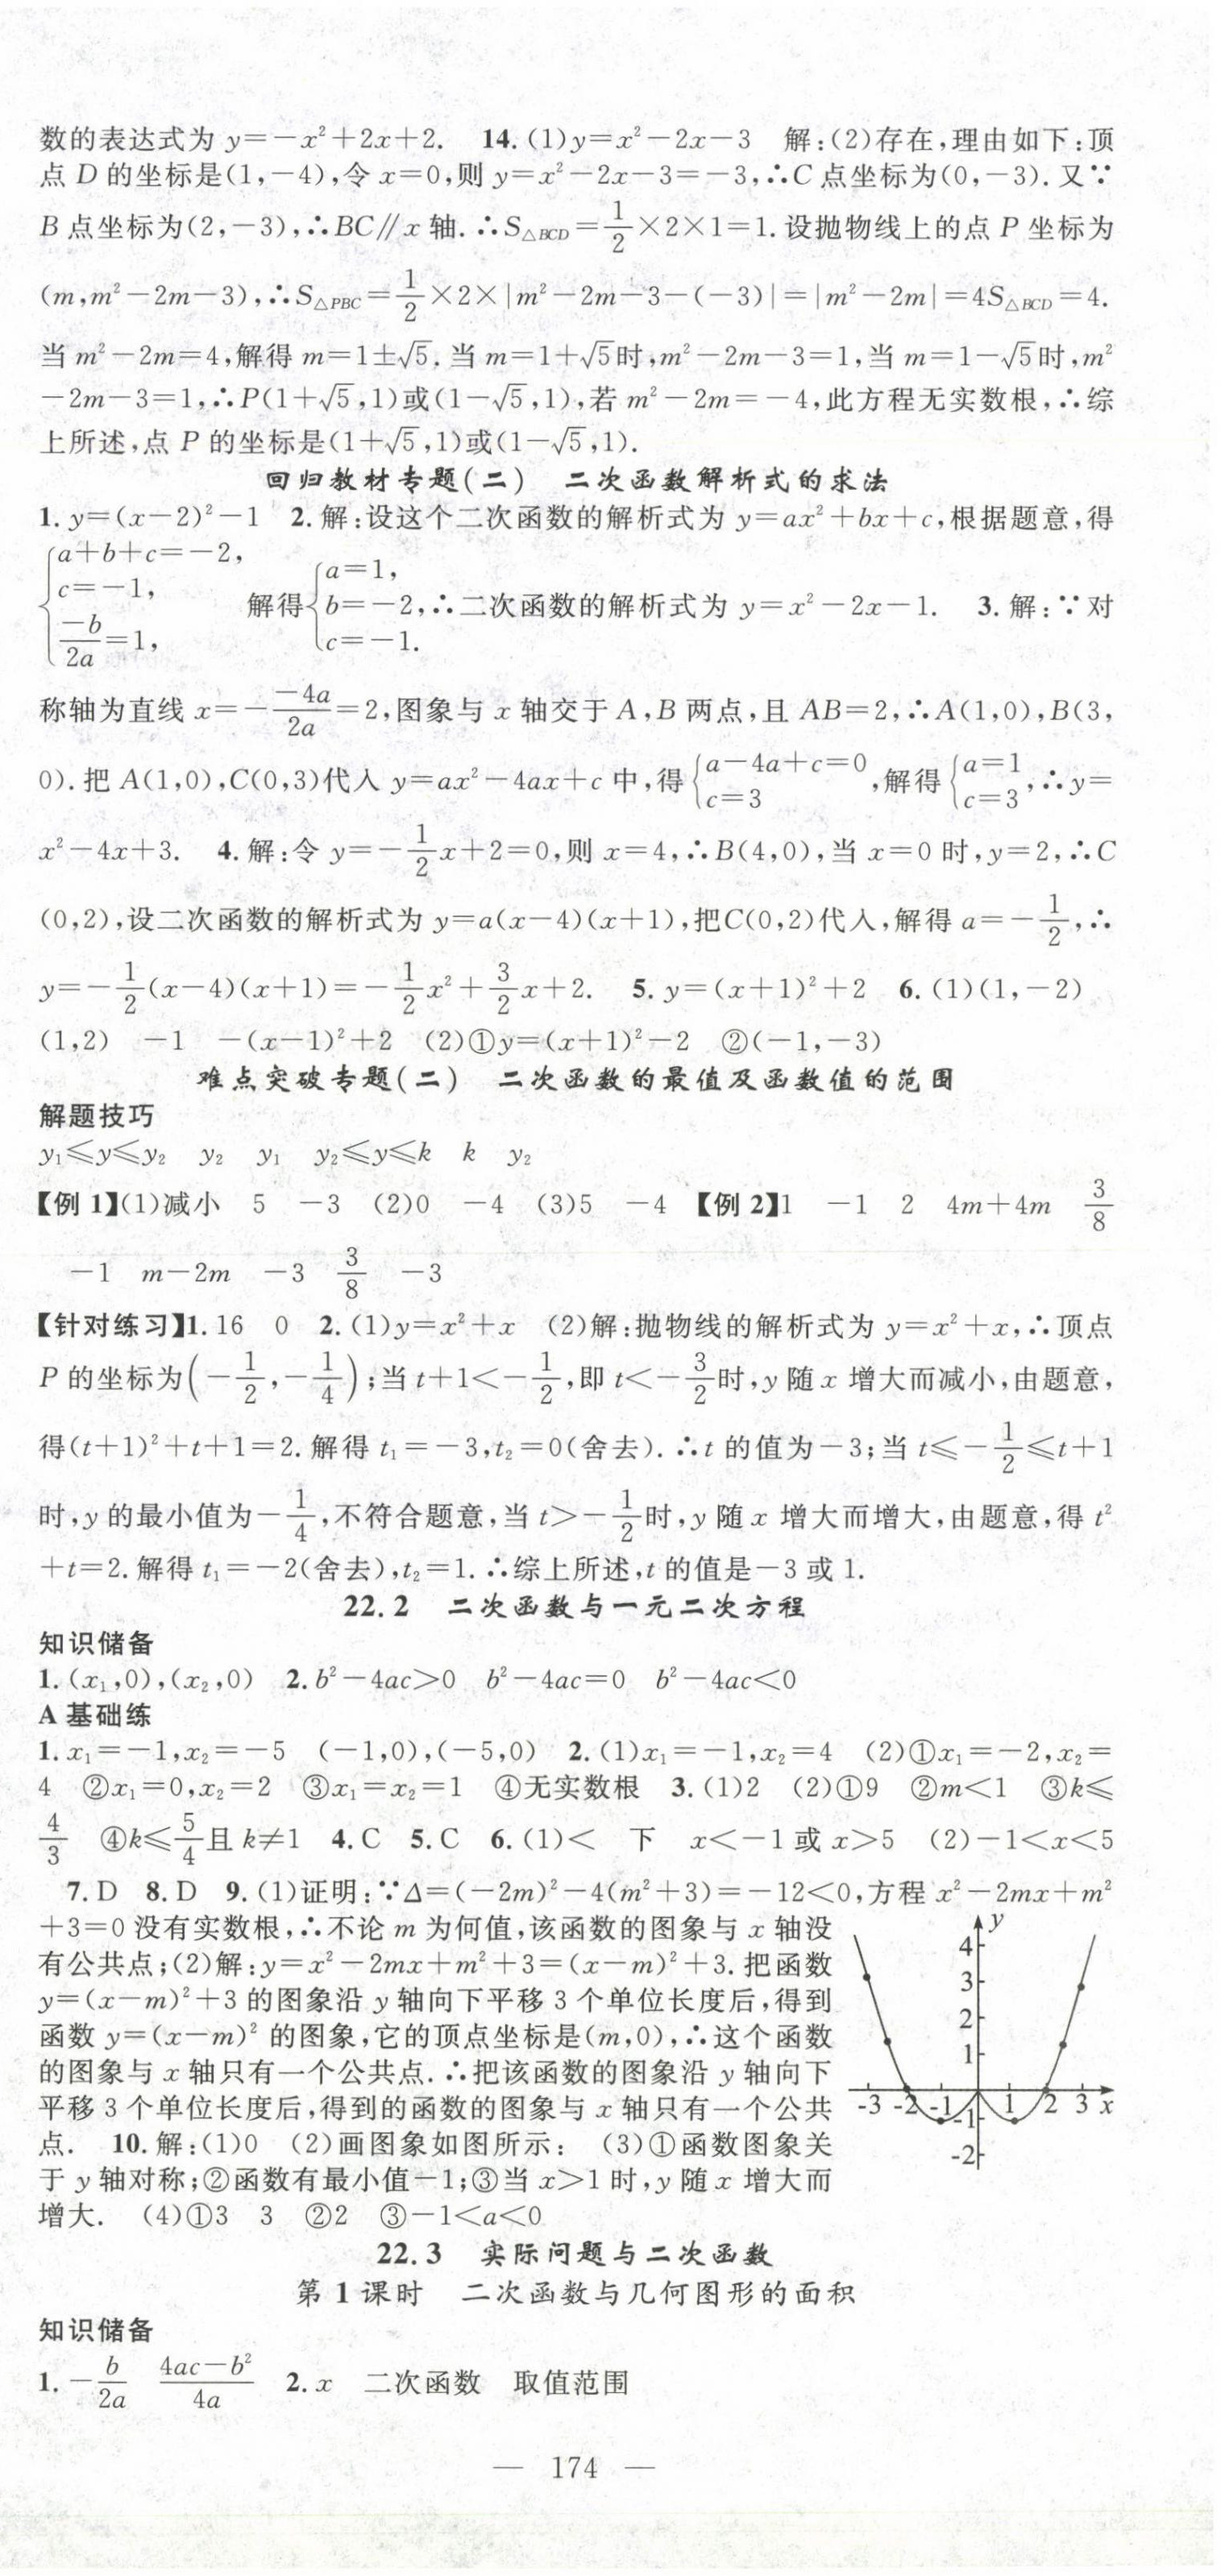 数的表达式为 y=-x²+2x+2. 14.(1)y=x²-2x-3 解:(2)存在,理由如下:顶
点 D 的坐标是(1,-4),令 x=0,则 y=x²-2x-3=-3,∴C 点坐标为(0,-3).又∵
B 点坐标为(2,-3),∴BC∥x 轴.∴S△BCD=1/2×2×1=1.设抛物线上的点 P 坐标为
(m,m²-2m-3),∴S△PBC=1/2×2×|m²-2m-3-(-3)|=|m²-2m|=4S△BCD=4.
当 m²-2m=4,解得 m=1±√5.当 m=1+√5时,m²-2m-3=1,当 m=1-√5时,m²
-2m-3=1,∴P(1+√5,1)或(1-√5,1),若 m²-2m=-4,此方程无实数根,∴综
上所述,点 P 的坐标是(1+√5,1)或(1-√5,1).
回归教材专题(二) 二次函数解析式的求法
1. y=(x-2)²-1 2.解:设这个二次函数的解析式为 y=ax²+bx+c,根据题意,得
{a+b+c=-2, c=-1, -b/2a=1, 解得{a=1, b=-2, c=-1. ∴二次函数的解析式为 y=x²-2x-1. 3.解:∵对
称轴为直线 x=--4a/2a=2,图象与 x 轴交于 A,B 两点,且 AB=2,∴A(1,0),B(3,
0).把 A(1,0),C(0,3)代入 y=ax²-4ax+c 中,得{a-4a+c=0 c=3,解得{a=1 c=3,∴y=
x²-4x+3. 4.解:令 y=-1/2x+2=0,则 x=4,∴B(4,0),当 x=0 时,y=2,∴C
(0,2),设二次函数的解析式为 y=a(x-4)(x+1),把C(0,2)代入,解得 a=-1/2,∴
y=-1/2(x-4)(x+1)=-1/2x²+3/2x+2. 5. y=(x+1)²+2 6.(1)(1,-2)
(1,2) -1 -(x-1)²+2 (2)①y=(x+1)²-2 ②(-1,-3)
难点突破专题(二) 二次函数的最值及函数值的范围
解题技巧
y₁≤y≤y₂ y₂ y₁ y₂≤y≤k k y₂
【例 1】(1)减小 5 -3 (2)0 -4 (3)5 -4 【例 2】1 -1 2 4m+4m 3/8
-1 m-2m -3 3/8 -3
【针对练习】1. 16 0 2.(1)y=x²+x (2)解:抛物线的解析式为 y=x²+x,∴顶点
P 的坐标为(-1/2,-1/4);当 t+1<-1/2,即 t<-3/2时,y 随 x 增大而减小,由题意,
得(t+1)²+t+1=2.解得 t₁=-3,t₂=0(舍去).∴t 的值为-3;当 t≤-1/2≤t+1
时,y 的最小值为-1/4,不符合题意,当 t>-1/2时,y 随 x 增大而增大,由题意,得 t²
+t=2.解得 t₁=-2(舍去),t₂=1.∴综上所述,t 的值是-3 或 1.
22.2 二次函数与一元二次方程
知识储备
1.(x₁,0),(x₂,0) 2. b²-4ac>0 b²-4ac=0 b²-4ac<0
A 基础练
1. x₁=-1,x₂=-5 (-1,0),(-5,0) 2.(1)x₁=-1,x₂=4 (2)①x₁=-2,x₂=
4 ②x₁=0,x₂=2 ③x₁=x₂=1 ④无实数根 3.(1)2 (2)①9 ②m<1 ③k≤
4/3 ④k≤5/4且 k≠1 4. C 5. C 6.(1)< 下 x<-1 或 x>5 (2)-1<x<5
7. D 8. D 9.(1)证明:∵Δ=(-2m)²-4(m²+3)=-12<0,方程 x²-2mx+m²
+3=0 没有实数根,∴不论 m 为何值,该函数的图象与 x 轴没
有公共点;(2)解:y=x²-2mx+m²+3=(x-m)²+3.把函数
y=(x-m)²+3 的图象沿 y 轴向下平移 3 个单位长度后,得到
函数 y=(x-m)² 的图象,它的顶点坐标是(m,0),∴这个函数
的图象与 x 轴只有一个公共点.∴把该函数的图象沿 y 轴向下
平移 3 个单位长度后,得到的函数的图象与 x 轴只有一个公共
点. 10.解:(1)0 (2)画图象如图所示: (3)①函数图象关
于 y 轴对称;②函数有最小值-1;③当 x>1 时,y 随 x 增大而
增大. (4)①3 3 ②2 ③-1<a<0
y
4
3
2
1
-3 -2 -1 1 2 3 x
-1
-2
22.3 实际问题与二次函数
第 1 课时 二次函数与几何图形的面积
知识储备
1. -b/2a 4ac-b²/4a 2. x 二次函数 取值范围
— 174 —